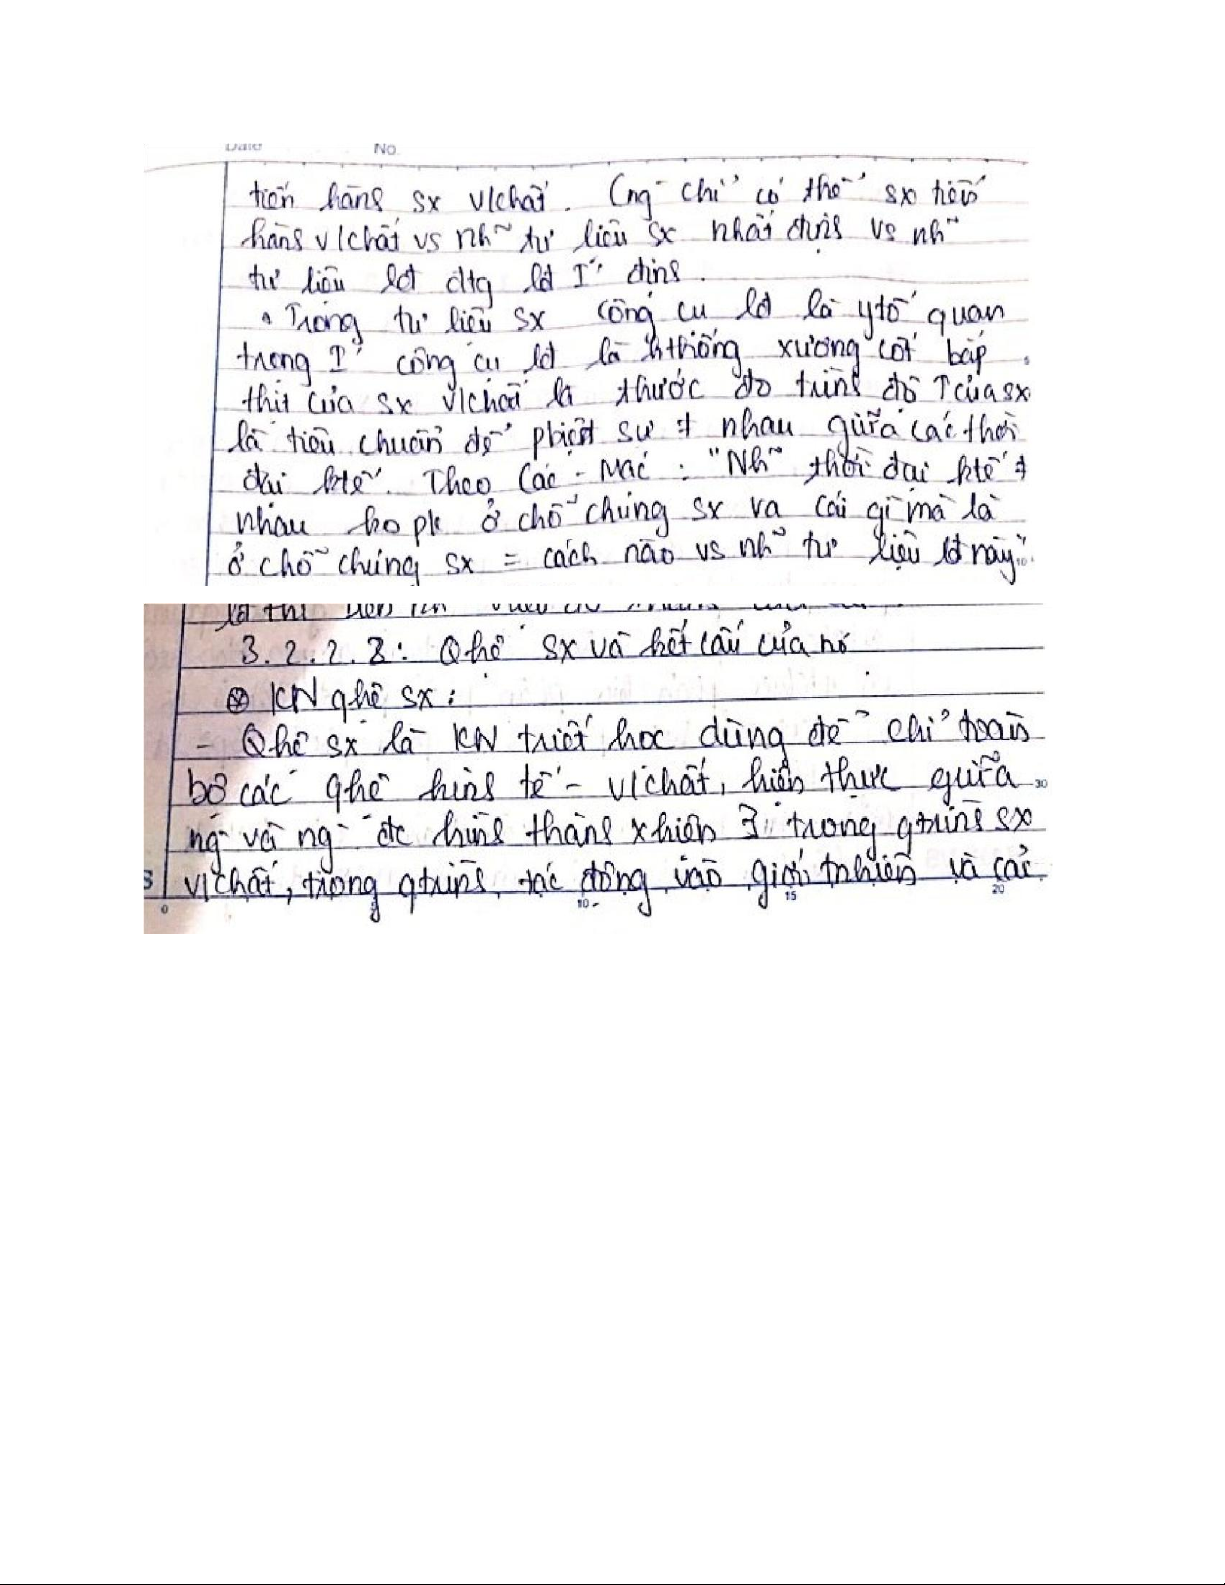 No.
tiến hành sx v/chất. Cng chỉ có thể sx tiến
hành v/chất vs nh~ tư liệu sx nhất định vs nh~
tư liệu lđ đtg lđ I" định.
Trong tư liệu sx công cụ lđ là ytố quan
trọng I" công cụ lđ là hthống xương cốt bắp
thịt của sx v/chất là thước đo trình độ ↑ của sx
là tiêu chuẩn để pbiệt sự ≠ nhau giữa các thời
đại ktế. Theo Các - Mác: "Nh~ thời đại ktế ≠
nhau ko pk ở chỗ chúng sx ra cái gì mà là
ở chỗ chúng sx = cách nào vs nh~ tư liệu lđ này".
3.2.2.2: Qhệ sx và kết cấu của nó
⊗ KN qhệ sx:
- Qhệ sx là KN triết học dùng để chỉ toàn
bộ các qhệ kinh tế - v/chất, hiện thực giữa 30
ng và ng đc hình thành xhiện trong qtrình sx
3 v/chất, trong qtrình tác động vào giới tnhiên và cải
0 10 15 20